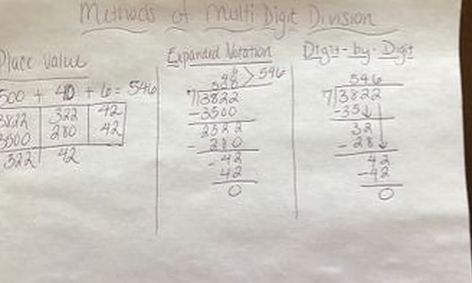 Methods of Multi Digit Division
Place Value
500 + 40 + 6 = 546
3822 322 42
3500 280 42
322 42
Expanded Notation
546
7|3822
-3500
2522
- 280
- 42
42
0
Digit-by-Digit
546
7|3822
-35
32
- 28
42
-42
0